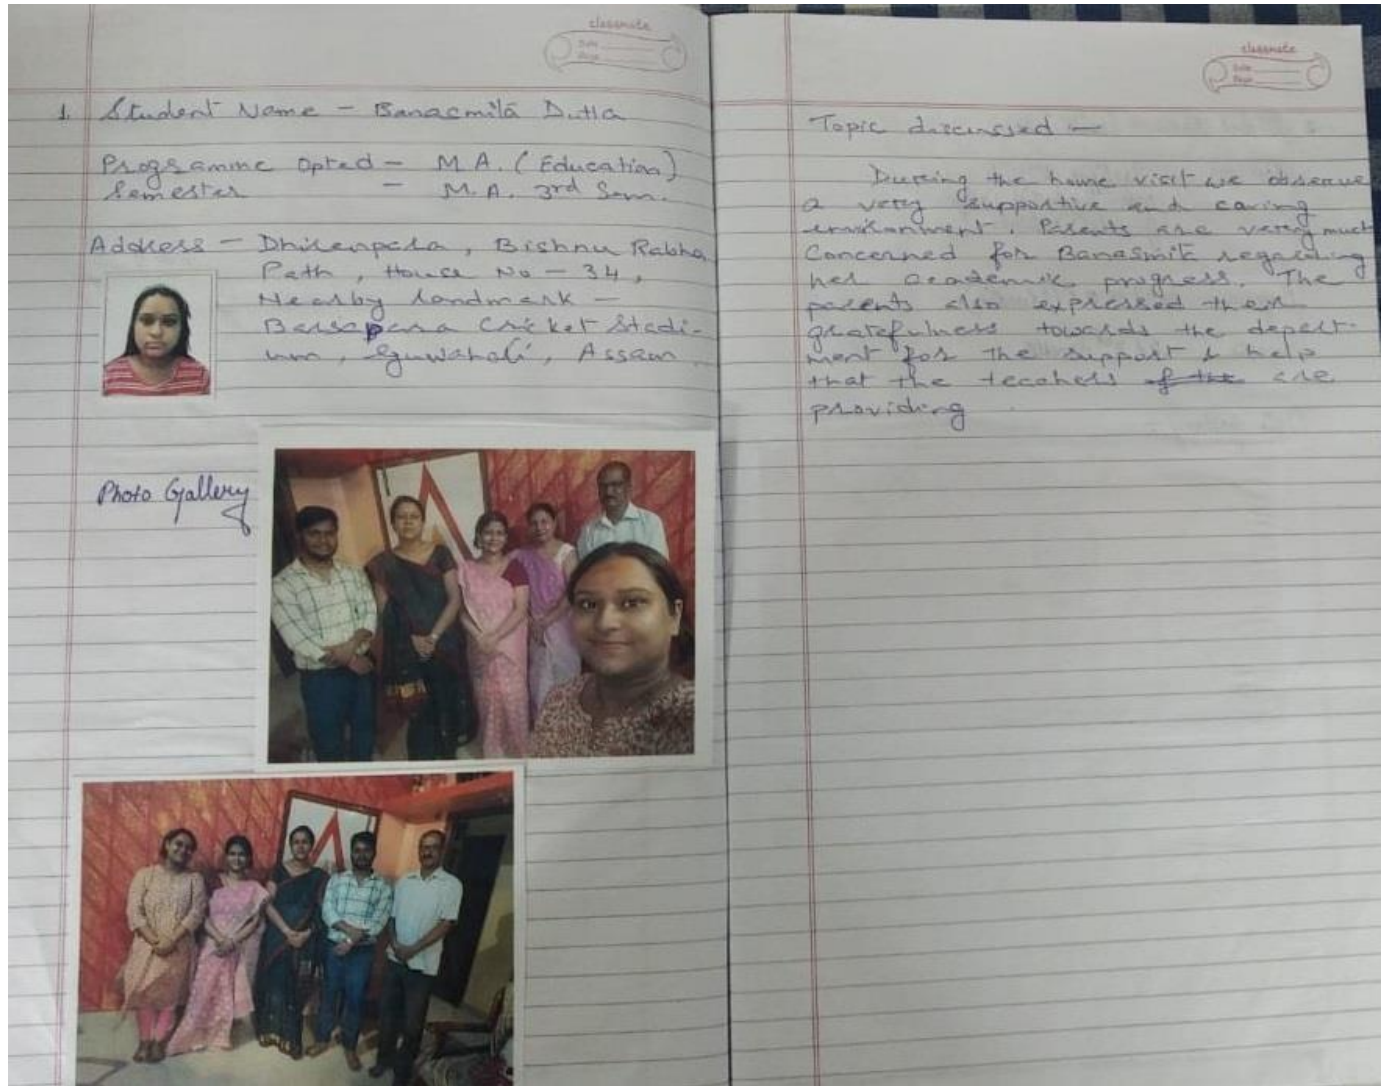 classmate
Date
Page
1. Student Name - Banasmita Dutta
Programme Opted - M.A. (Education)
Semester - M.A. 3rd Sem.
Address - Dhirenpara, Bishnu Rabha
Path, House No - 34,
Nearby landmark -
Barsapara Cricket Stadi-
um, Guwahati, Assam
Photo Gallery
classmate
Date
Page
Topic discussed -
During the home visit we observe
a very supportive and caring
environment. Parents are very much
concerned for Banasmit regarding
her academic progress. The
parents also expressed their
gratefulness towards the depart-
ment for the support & help
that the teachers of the are
providing.